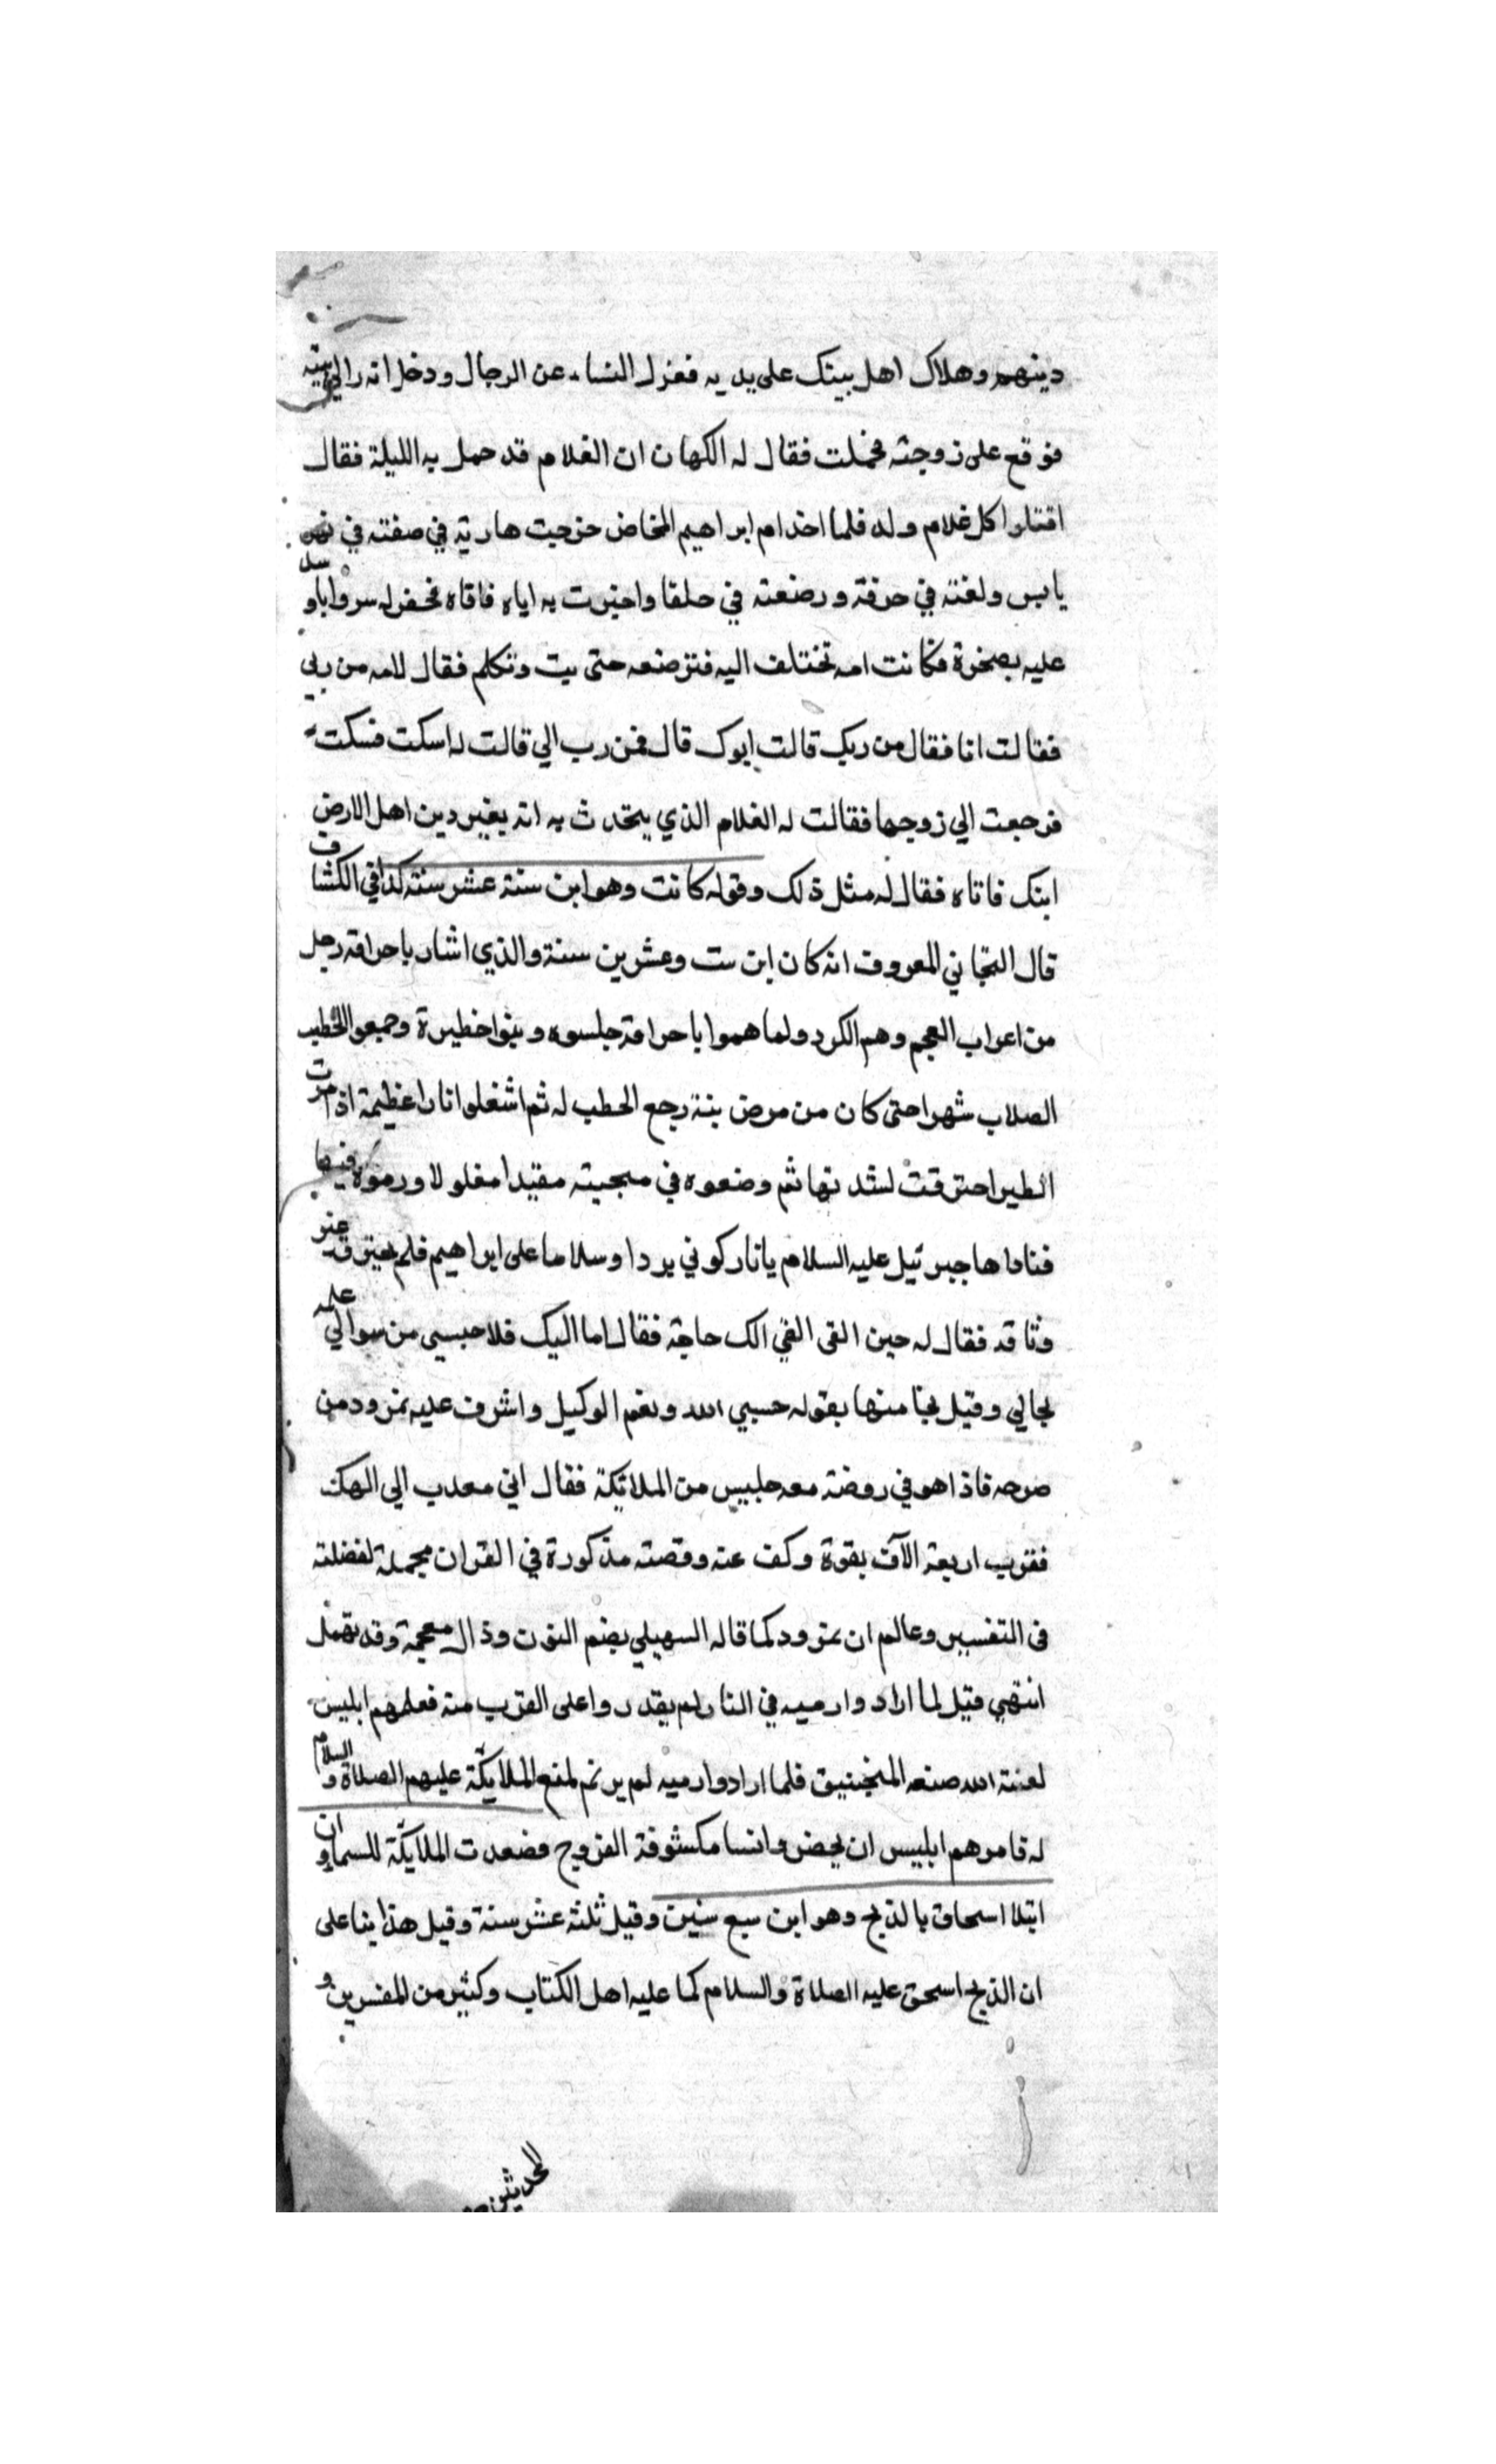 دينهم وهلاك اهل بيتك على يديه فعزل النساء عن الرجال ودخل انه رالي بيته
فوقع على زوجته فحملت فقال له الكهان ان الغلام قد حمل به الليلة فقال
اقتلوا كل غلام ولد فلما اخذ ام ابراهيم المخاض خرجت هاربة في صفته في نهر
يابس ولفته في خرقة ورضعته في حلفا واخبرت به اباه فاتاه فحفر له سروابا وسد
عليه بصخرة فكانت امه تختلف اليه فترضعه حتى بت وتكلم فقال لامه من ربي
فقالت انا فقال من ربك قالت ابوك قال فمن رب ابي قالت له اسكت فسكت
فرجعت الي زوجها فقالت له الغلام الذي يتحدث به انه يغير دين اهل الارض
ابنك فاتاه فقال له مثل ذلك وقوله كانت وهو ابن ستة عشر سنة كذا في الكشاف
قال التجاني المعروف انه كان ابن ست وعشرين سنة والذي اشار باحراقه رجل
من اعراب العجم وهم الكرد ولما هموا باحراقه جلسوه وبنوا خطيرة وجمعوا الخطب
الصلاب شهرا حتى كان من مرض بنة رجع الحطب له ثم اشغلوا نارا عظيمة اذا مرت
الطير احترقت لشدتها ثم وضعوه في منجنيته مقيدا مغلولا ورموه فيها
فناداها جبرئيل عليه السلام يا نار كوني بردا وسلاما على ابراهيم فلم يحترق غير
وثاقه فقال له حين القى الفي الك حاجة فقال اما اليك فلا حبسي من سوالي علمه
بحالي وقيل نجا منها بقوله حسبي الله ونعم الوكيل واشرف عليه نمرود من
صرحه فاذا هو في روضة معه جليس من الملائكة فقال اني معدب الي الهك
فقرب اربعة الآف بقوة وكف عنه وقصته مذكورة في القران مجملة لفضلته
في التفسير وعالم ان نمرود كما قاله السهيلي بضم النون وذال معجمة وقد تهمل
انتهي قيل لما ارادوا رميه في النار لم يقدروا على القرب منه فعلمهم ابليس
لعنة الله صنعه المنجنيق فلما ارادوا رميه لم يرتم لمنع الملايكة عليهم الصلاة والسلام
له فامرهم ابليس ان يحضروا نسا مكشوفة الفروج فضعدت الملايكة للسما وان
ابتلا اسحاق بالذبح وهو ابن سبع سنين وقيل ثلثة عشر سنة وقيل هذا بنا على
ان الذبح اسحق عليه الصلاة والسلام كما عليه اهل الكتاب وكثير من المفسرين و
المحدثين